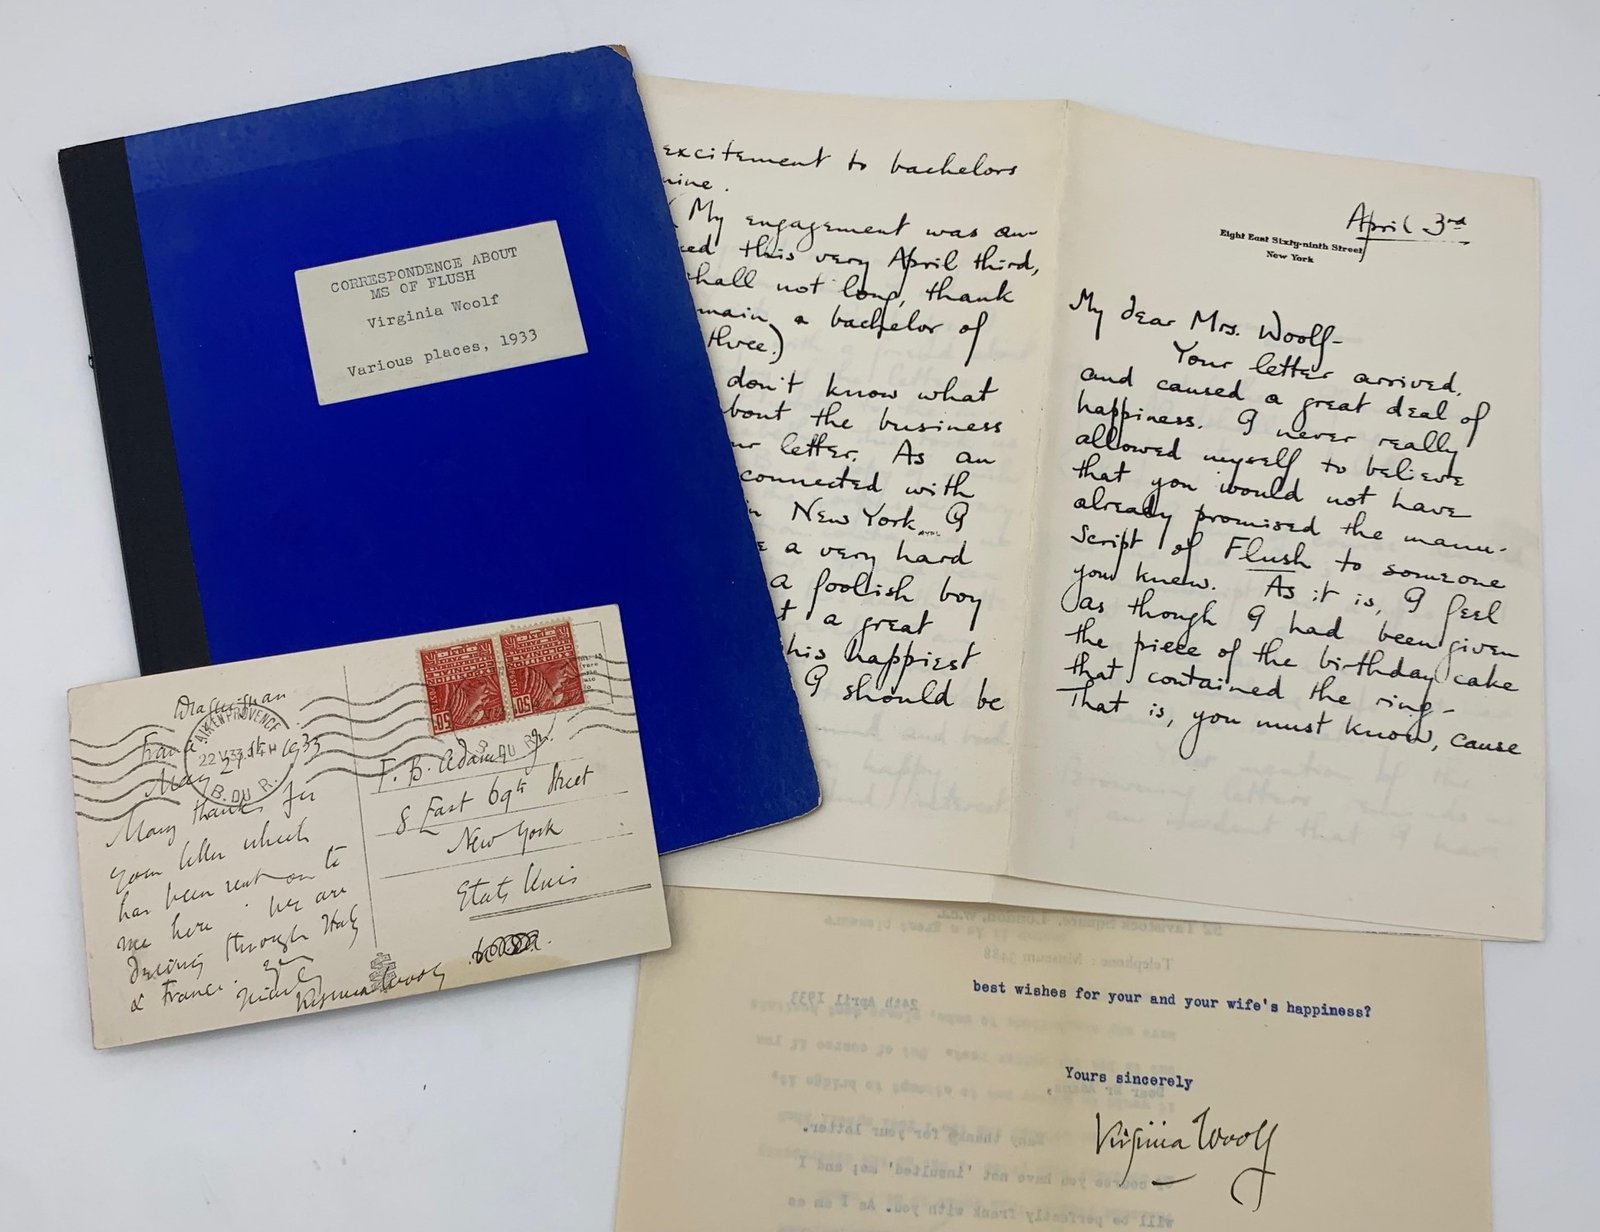 CORRESPONDENCE ABOUT
MS OF FLUSH
Virginia Woolf
Various places, 1933
excitement to bachelors
mine.
(My engagement was an-
ced this very April third,
hall not long, thank
main, a bachelor of
three.)
don't know what
bout the business
ur letter. As an
connected with
in New York I
e a very hard
a foolish boy
t a great
his happiest
I should be
April 3rd
Eight East Sixty-ninth Street
New York
My dear Mrs. Woolf-
Your letter arrived,
and caused a great deal of
happiness. I never really
allowed myself to believe
that you would not have
already promised the manu-
script of Flush to someone
you knew. As it is, I feel
as though I had been given
the piece of the birthday cake
that contained the ring-
That is, you must know, cause
France
May 21st 1933
Many thanks for
your letter which
has been sent on to
me here. We are
driving through Italy
& France.
Virginia Woolf
AIX EN PROVENCE
B. DU R.
F. B. Adams Jr.
8 East 69th Street
New York
Etats Unis
52 Tavistock Square, London, W.C.1.
Telephone: Museum 3488
24th April 1933
Dear Mr Adams,
Many thanks for your letter.
Of course you have not 'insulted' me; and I
will be perfectly frank with you. As I am as
best wishes for your and your wife's happiness?
Yours sincerely
Virginia Woolf